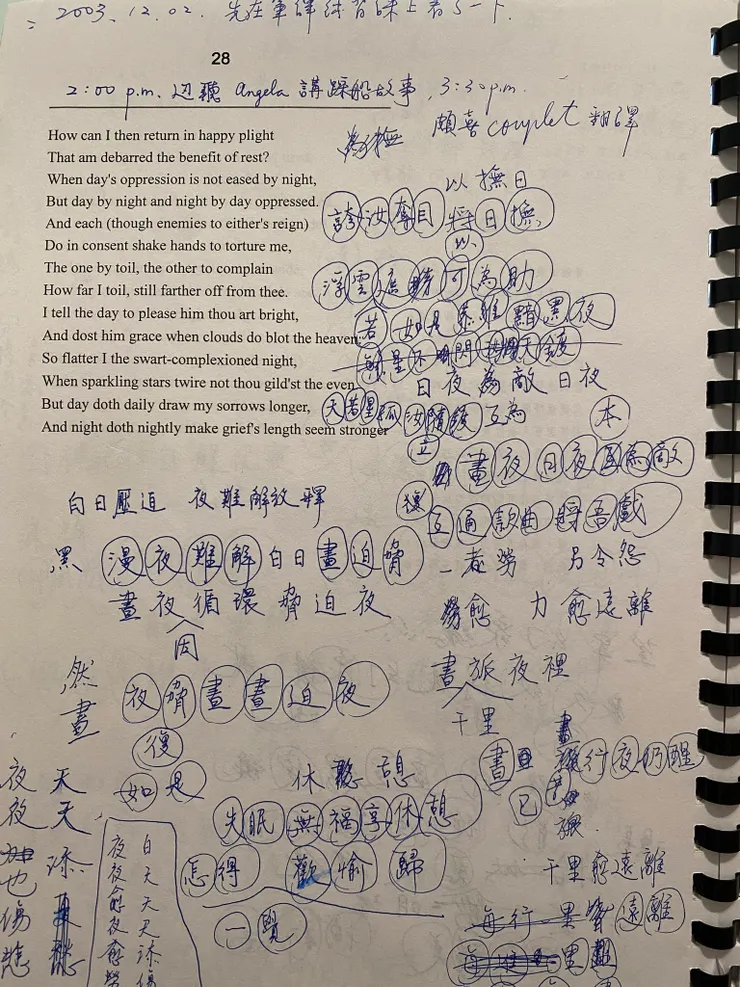 2003.12.02. 先在軍譯練習課上看了一下.
28
2:00 p.m. 边聽 Angela 講踩船故事, 3:30 p.m.
頗喜 couplet 翻譯
How can I then return in happy plight
That am debarred the benefit of rest?
When day's oppression is not eased by night,
But day by night and night by day oppressed.
And each (though enemies to either's reign)
Do in consent shake hands to torture me,
The one by toil, the other to complain
How far I toil, still farther off from thee.
I tell the day to please him thou art bright,
And dost him grace when clouds do blot the heaven:
So flatter I the swart-complexioned night,
When sparkling stars twire not thou gild'st the even.
But day doth daily draw my sorrows longer,
And night doth nightly make grief's length seem stronger
為撫
以撫日
誇汝奪目 將日撫,
以
浮雲遮時可為助
若如是恭維黯黑夜
日夜為敵日夜
互為
本
晝夜日夜互為敵
互通款曲將吾戲
一者勞 另令怨
勞愈 力愈遠離
晝旅夜裡
千里
白日壓迫 夜難解放釋
黑 漫夜難解白日晝迫脅
晝夜循環脅迫夜
因
然晝
夜脅晝晝迫夜
復
如是
休憩
失眠無福享休憩
怎得 歡愉歸
一覺
行夜仍醒
已
千里愈遠離
遠離
夜夜也傷悲
天天添
白天天天添傷
夜夜愈夜愈勞